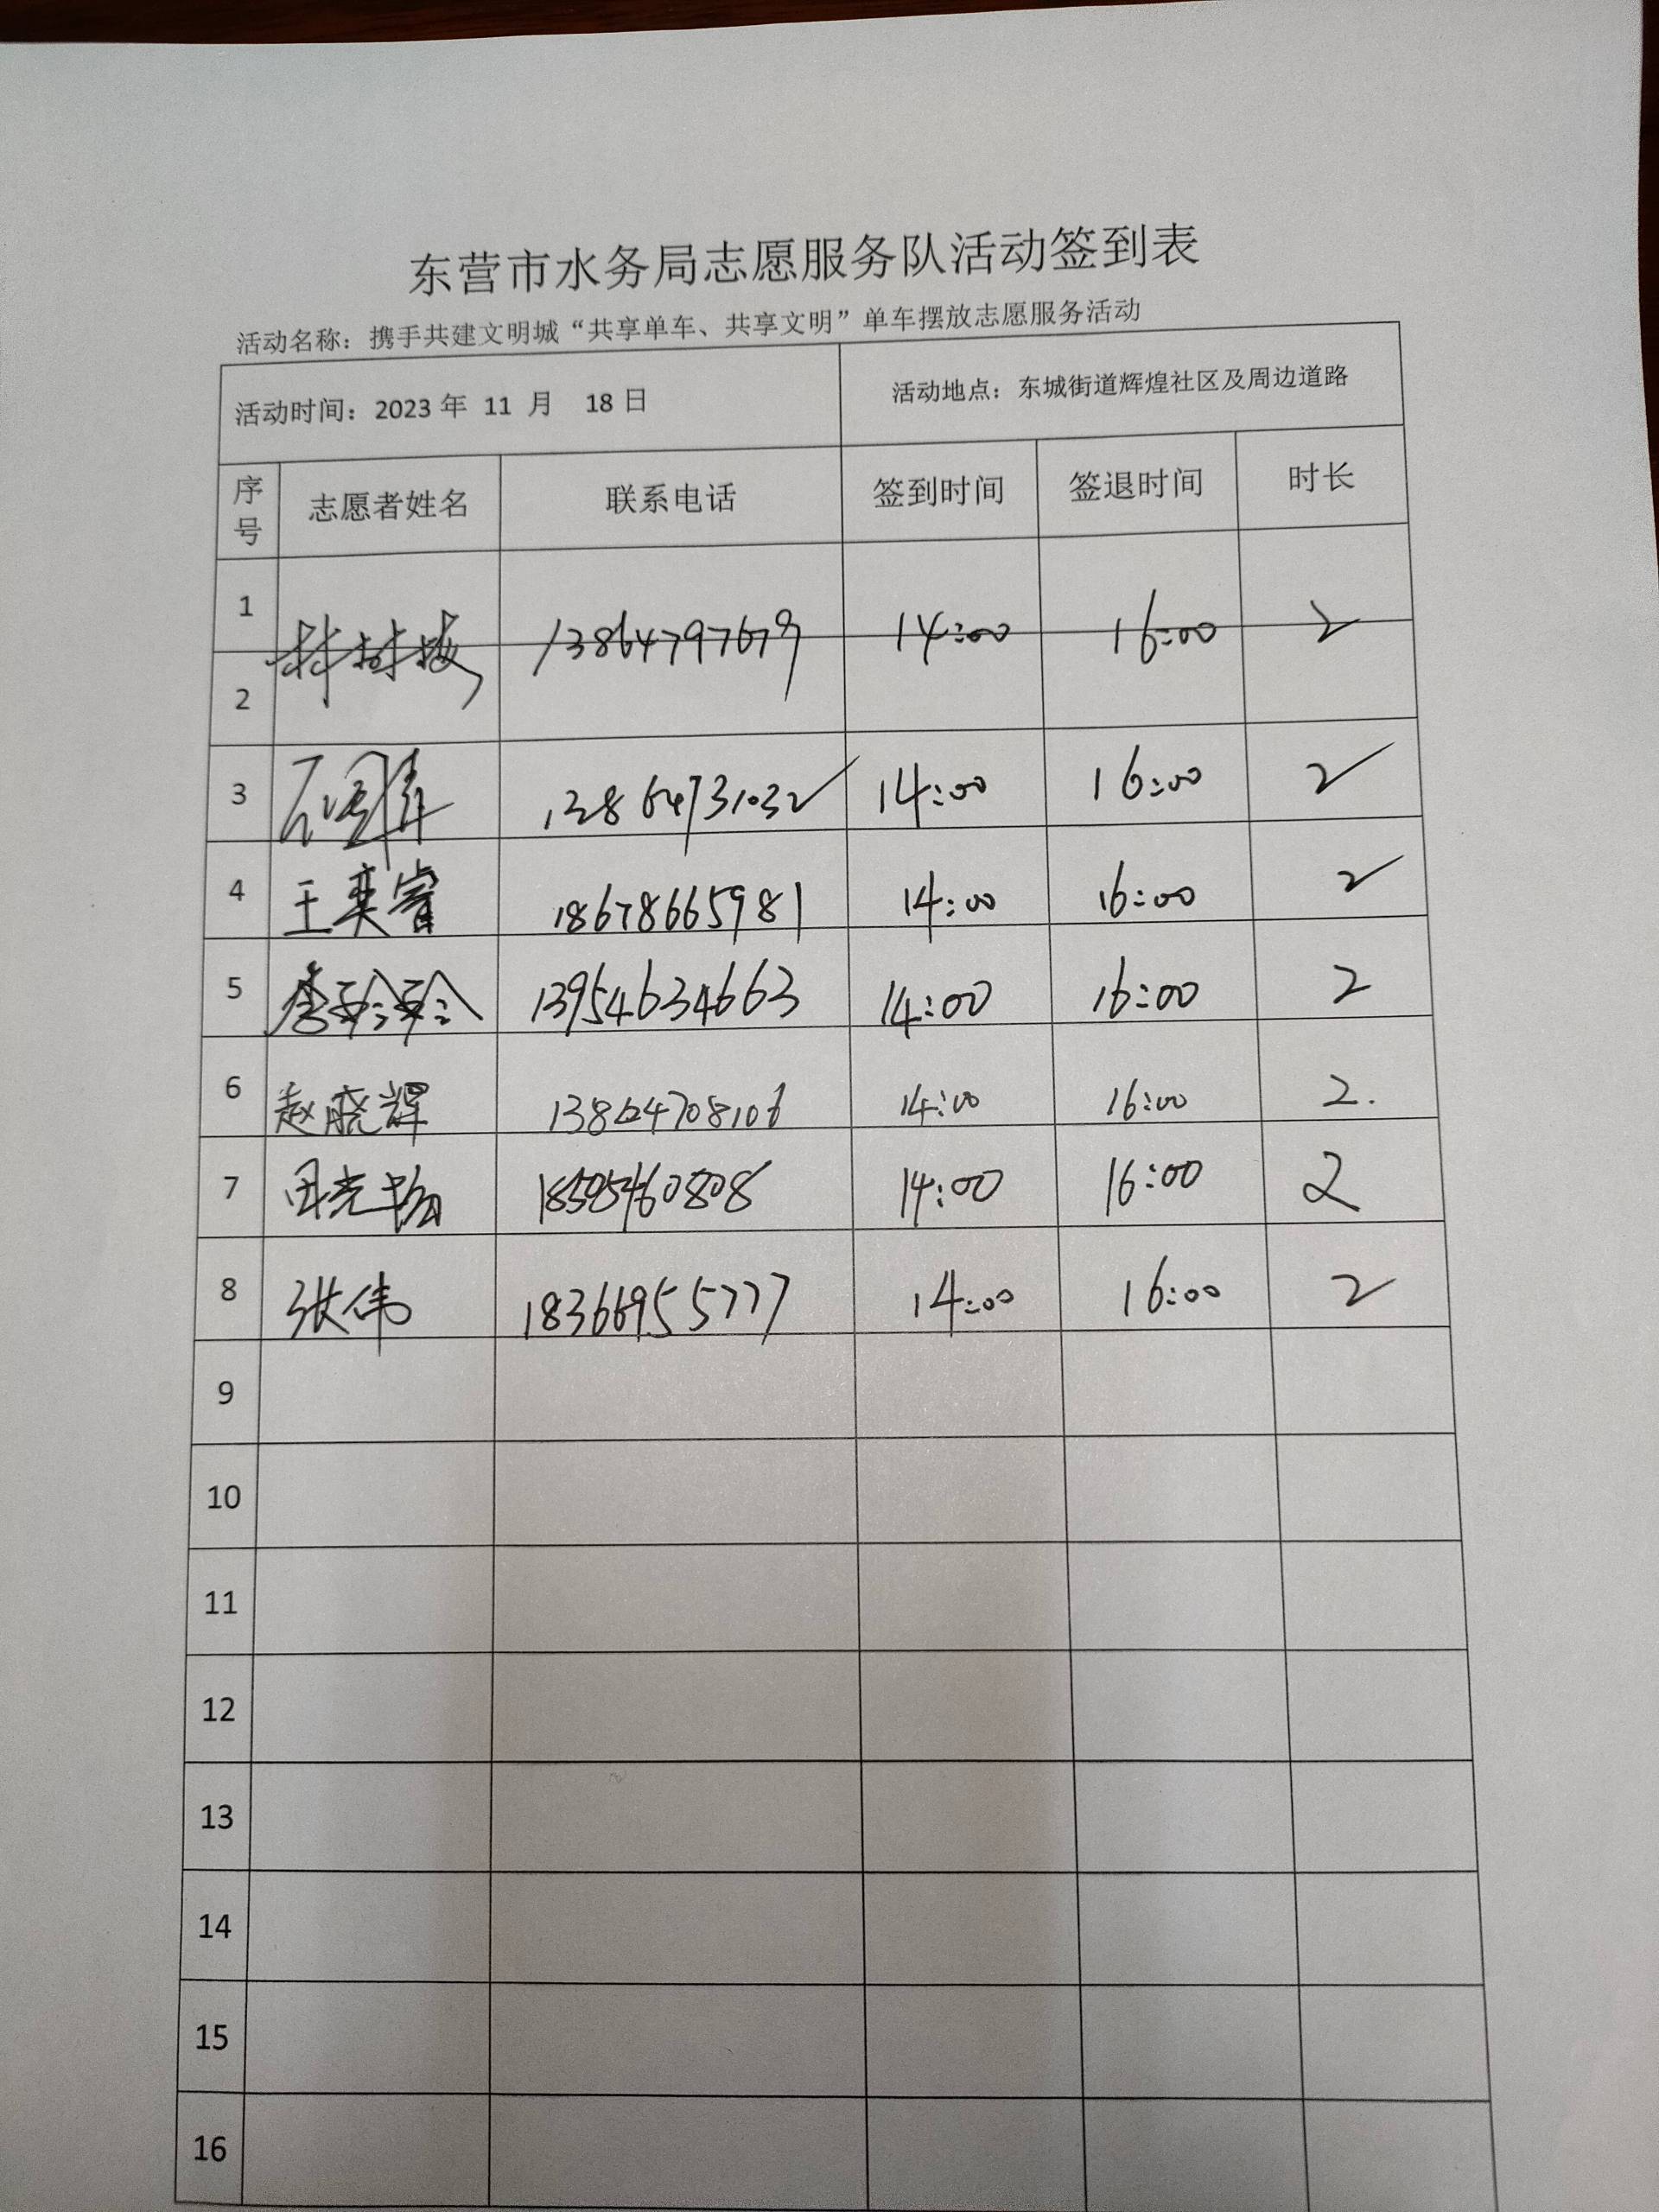 东营市水务局志愿服务队活动签到表
活动名称：携手共建文明城“共享单车、共享文明”单车摆放志愿服务活动
活动时间：2023 年 11 月 18 日 活动地点：东城街道辉煌社区及周边道路
序号 志愿者姓名 联系电话 签到时间 签退时间 时长
1 13864797679 14:00 16:00 2
2
3 13864731032 14:00 16:00 2
4 王奕睿 18678665981 14:00 16:00 2
5 李玲玲 13954634663 14:00 16:00 2
6 赵晓辉 13864708106 14:00 16:00 2.
7 14:00 16:00 2
8 张伟 18366955777 14:00 16:00 2
9
10
11
12
13
14
15
16